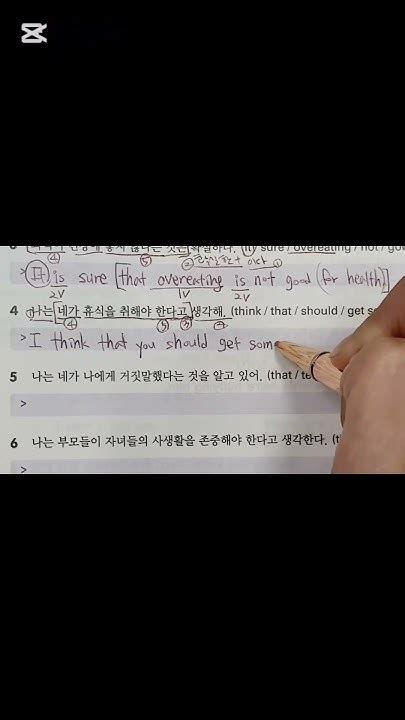 건강에 좋지 않다는 것은 확실하다. (it / sure / overeating / not / go
④ ⑤ ② 확실한+ 이다 ①
> It is sure [that overeating is not good (for health)]
2V 1V 2V
4 ① 나는 [네가 휴식을 취해야 한다고] 생각해. (think / that / should / get so
④ ⑤ ③ ②
> I think that you should get som
5 나는 네가 나에게 거짓말했다는 것을 알고 있어. (that / te
>
6 나는 부모들이 자녀들의 사생활을 존중해야 한다고 생각한다. (t
>